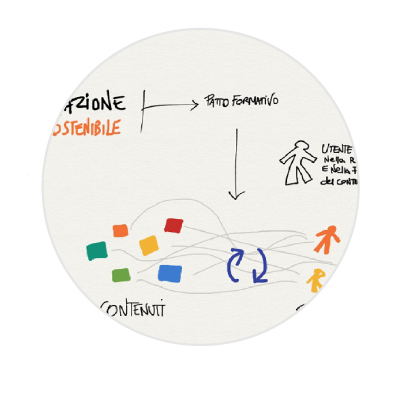 AZIONE
OSTENIBILE
PATTO FORMATIVO
UTENTE
NELLA R
E NELLA F
DEL CONTE
CONTENUTI